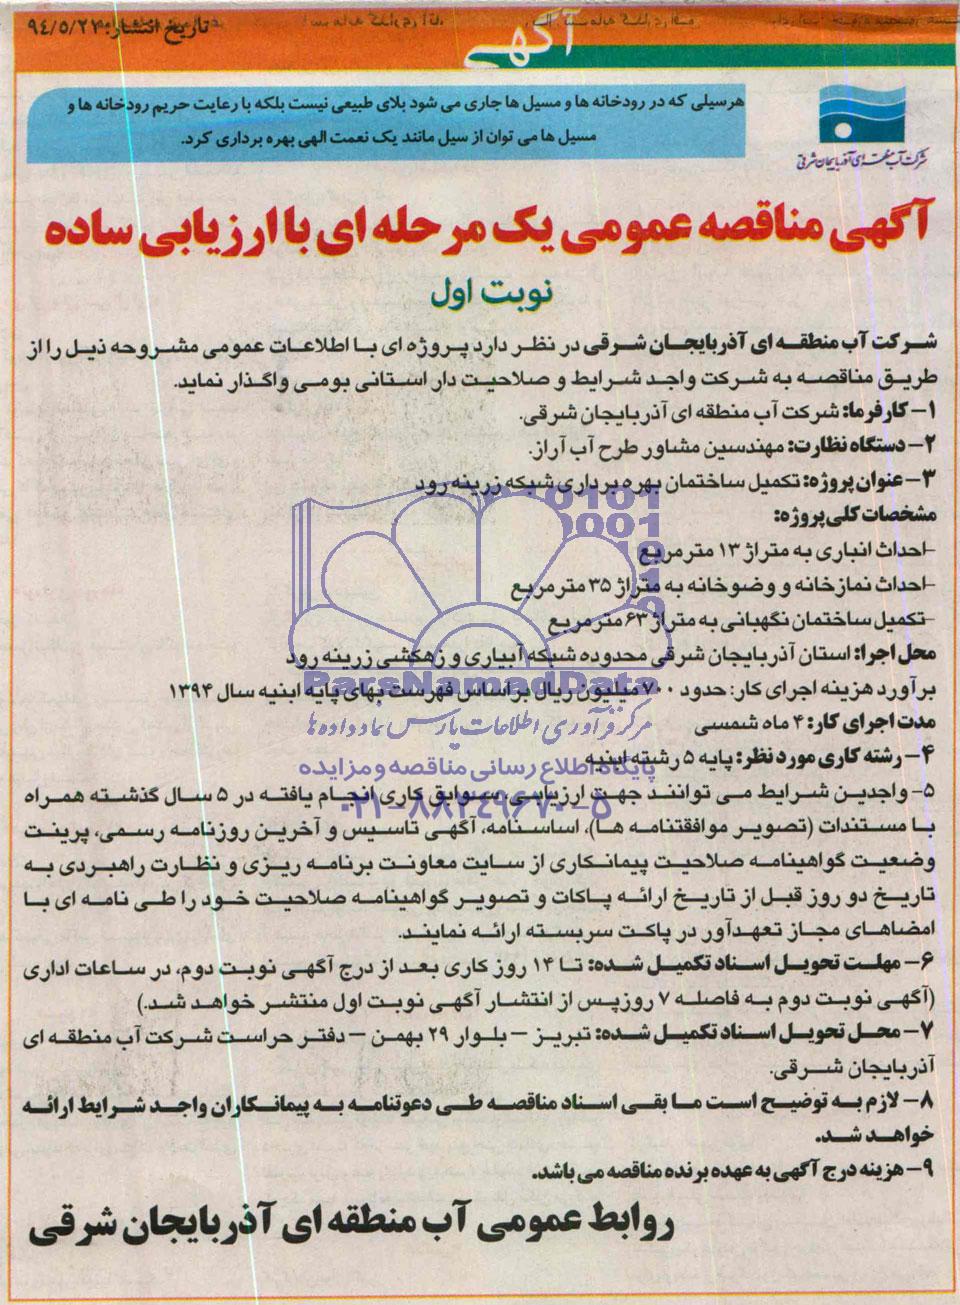 تاریخ انتشار: ۹۴/۵/۲۴
آگهی
هرسیلی که در رودخانه ها و مسیل ها جاری می شود بلای طبیعی نیست بلکه با رعایت حریم رودخانه ها و
مسیل ها می توان از سیل مانند یک نعمت الهی بهره برداری کرد.
شرکت آب منطقه ای آذربایجان شرقی
آگهی مناقصه عمومی یک مرحله ای با ارزیابی ساده
نوبت اول
شرکت آب منطقه ای آذربایجان شرقی در نظر دارد پروژه ای با اطلاعات عمومی مشروحه ذیل را از
طریق مناقصه به شرکت واجد شرایط و صلاحیت دار استانی بومی واگذار نماید.
۱- کارفرما: شرکت آب منطقه ای آذربایجان شرقی.
۲- دستگاه نظارت: مهندسین مشاور طرح آب آراز.
۳- عنوان پروژه: تکمیل ساختمان بهره برداری شبکه زرینه رود
مشخصات کلی پروژه:
-احداث انباری به متراژ ۱۳ مترمربع
-احداث نمازخانه و وضوخانه به متراژ ۳۵ مترمربع
-تکمیل ساختمان نگهبانی به متراژ ۶۳ مترمربع
محل اجرا: استان آذربایجان شرقی محدوده شبکه آبیاری و زهکشی زرینه رود
برآورد هزینه اجرای کار: حدود ۷۰۰ میلیون ریال براساس فهرست بهای پایه ابنیه سال ۱۳۹۴
مدت اجرای کار: ۴ ماه شمسی
۴- رشته کاری مورد نظر: پایه ۵ رشته ابنیه
۵- واجدین شرایط می توانند جهت ارزیابی سوابق کاری انجام یافته در ۵ سال گذشته همراه
با مستندات (تصویر موافقتنامه ها)، اساسنامه، آگهی تاسیس و آخرین روزنامه رسمی، پرینت
وضعیت گواهینامه صلاحیت پیمانکاری از سایت معاونت برنامه ریزی و نظارت راهبردی به
تاریخ دو روز قبل از تاریخ ارائه پاکات و تصویر گواهینامه صلاحیت خود را طی نامه ای با
امضاهای مجاز تعهدآور در پاکت سربسته ارائه نمایند.
۶- مهلت تحویل اسناد تکمیل شده: تا ۱۴ روز کاری بعد از درج آگهی نوبت دوم، در ساعات اداری
(آگهی نوبت دوم به فاصله ۷ روزپس از انتشار آگهی نوبت اول منتشر خواهد شد.)
۷- محل تحویل اسناد تکمیل شده: تبریز – بلوار ۲۹ بهمن – دفتر حراست شرکت آب منطقه ای
آذربایجان شرقی.
۸- لازم به توضیح است ما بقی اسناد مناقصه طی دعوتنامه به پیمانکاران واجد شرایط ارائه
خواهد شد.
۹- هزینه درج آگهی به عهده برنده مناقصه می باشد.
روابط عمومی آب منطقه ای آذربایجان شرقی
ParsNamadData
مرکز فرآوری اطلاعات پارس نماد داده ها
پایگاه اطلاع رسانی مناقصه و مزایده
۰۲۱-۸۸۳۴۹۶۷۰-۵